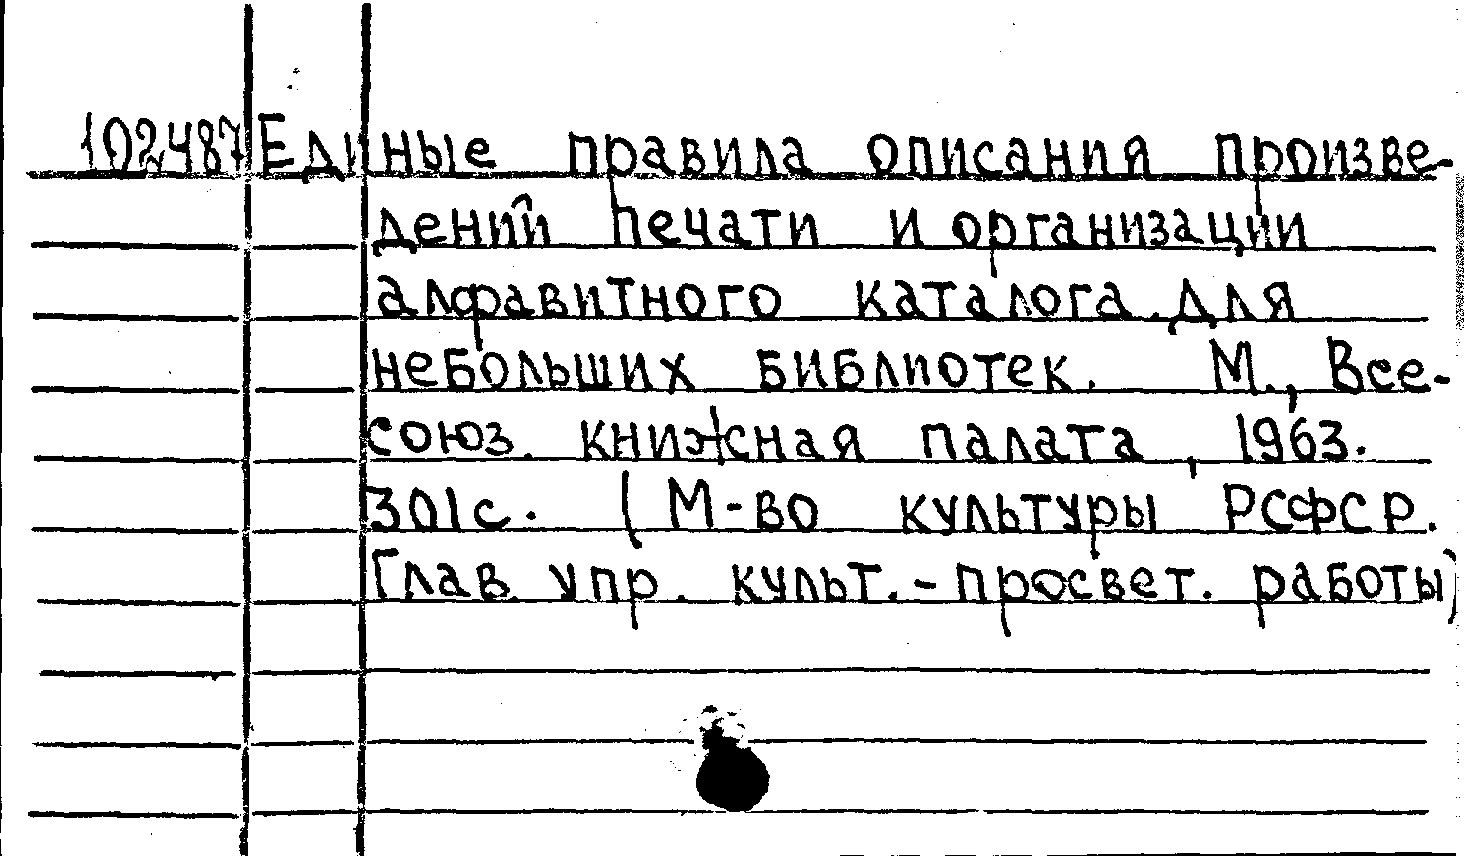 102487 Единые правила описания произве-
дений печати и организации
алфавитного каталога для
небольших библиотек. М., Все-
союз. книжная палата, 1963.
301с. (М-во культуры РСФСР.
Глав. упр. культ.-просвет. работы)